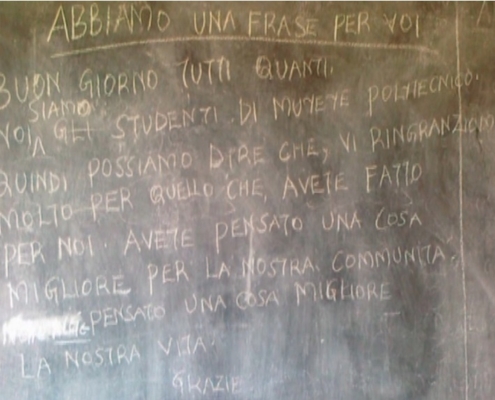 ABBIAMO UNA FRASE PER VOI
BUON GIORNO TUTTI QUANTI.
SIAMO
NOI GLI STUDENTI DI MUYEYE POLITECNICO.
QUINDI POSSIAMO DIRE CHE, VI RINGRANZIAMO
MOLTO PER QUELLO CHE, AVETE FATTO
PER NOI. AVETE PENSATO UNA COSA
MIGLIORE PER LA NOSTRA COMMUNITA.
PENSATO UNA COSA MIGLIORE
LA NOSTRA VITA.
GRAZIE.